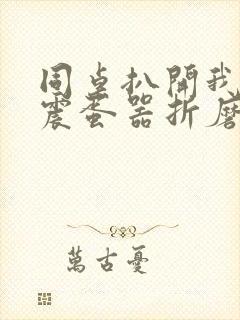 同桌扒開我
震蛋器折磨
萬古憂